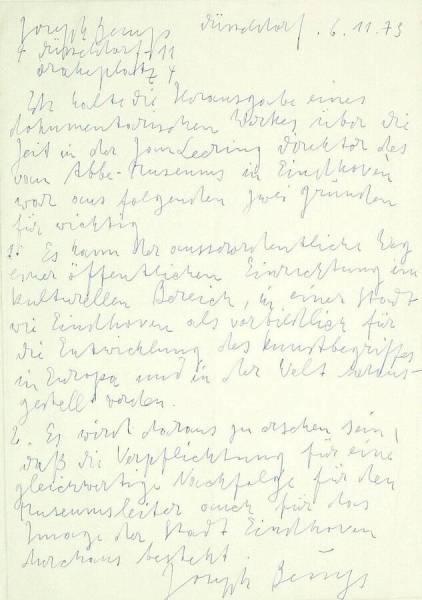 Joseph Beuys Düsseldorf, 6.11.73
4 Düsseldorf 11
Drakeplatz 4
Ich halte die Herausgabe eines
dokumentarischen Werkes über die
Zeit in der Jan Leering Direktor des
van Abbe-Museums in Eindhoven
war aus folgenden zwei Gründen
für wichtig
1. Es kann der ausserordentliche Weg
einer öffentlichen Einrichtung im
kulturellen Bereich, in einer Stadt
wie Eindhoven als vorbildlich für
die Entwicklung des Kunstbegriffes
in Europa und in der Welt heraus-
gestellt werden.
2. Es wird daraus zu ersehen sein,
daß die Verpflichtung für eine
gleichwertige Nachfolge für den
Museumsleiter auch für das
Image der Stadt Eindhoven
durchaus besteht.
Joseph Beuys